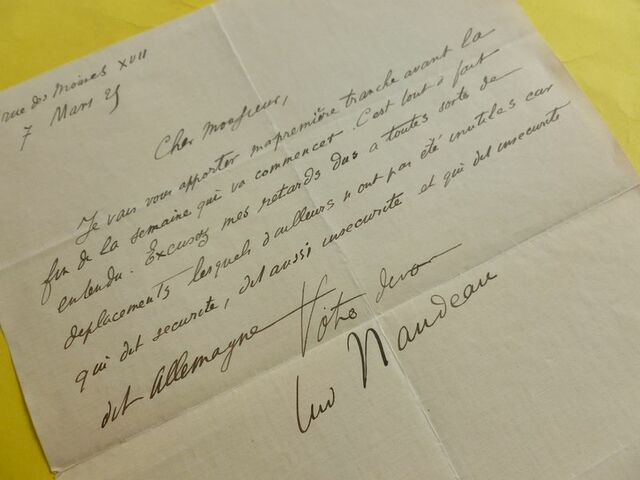 rue des Moines XVII
7 Mars 25
Cher Monsieur,
Je vais vous apporter ma première tranche avant la
fin de la semaine qui va commencer. C'est tout à fait
entendu. Excusez mes retards dus a toutes sorte de
deplacements lesquels d'ailleurs n'ont pas été inutiles car
qui dit securité, dit aussi insecurité et qui dit insecurité
dit Allemagne Votre devou
Naudeau